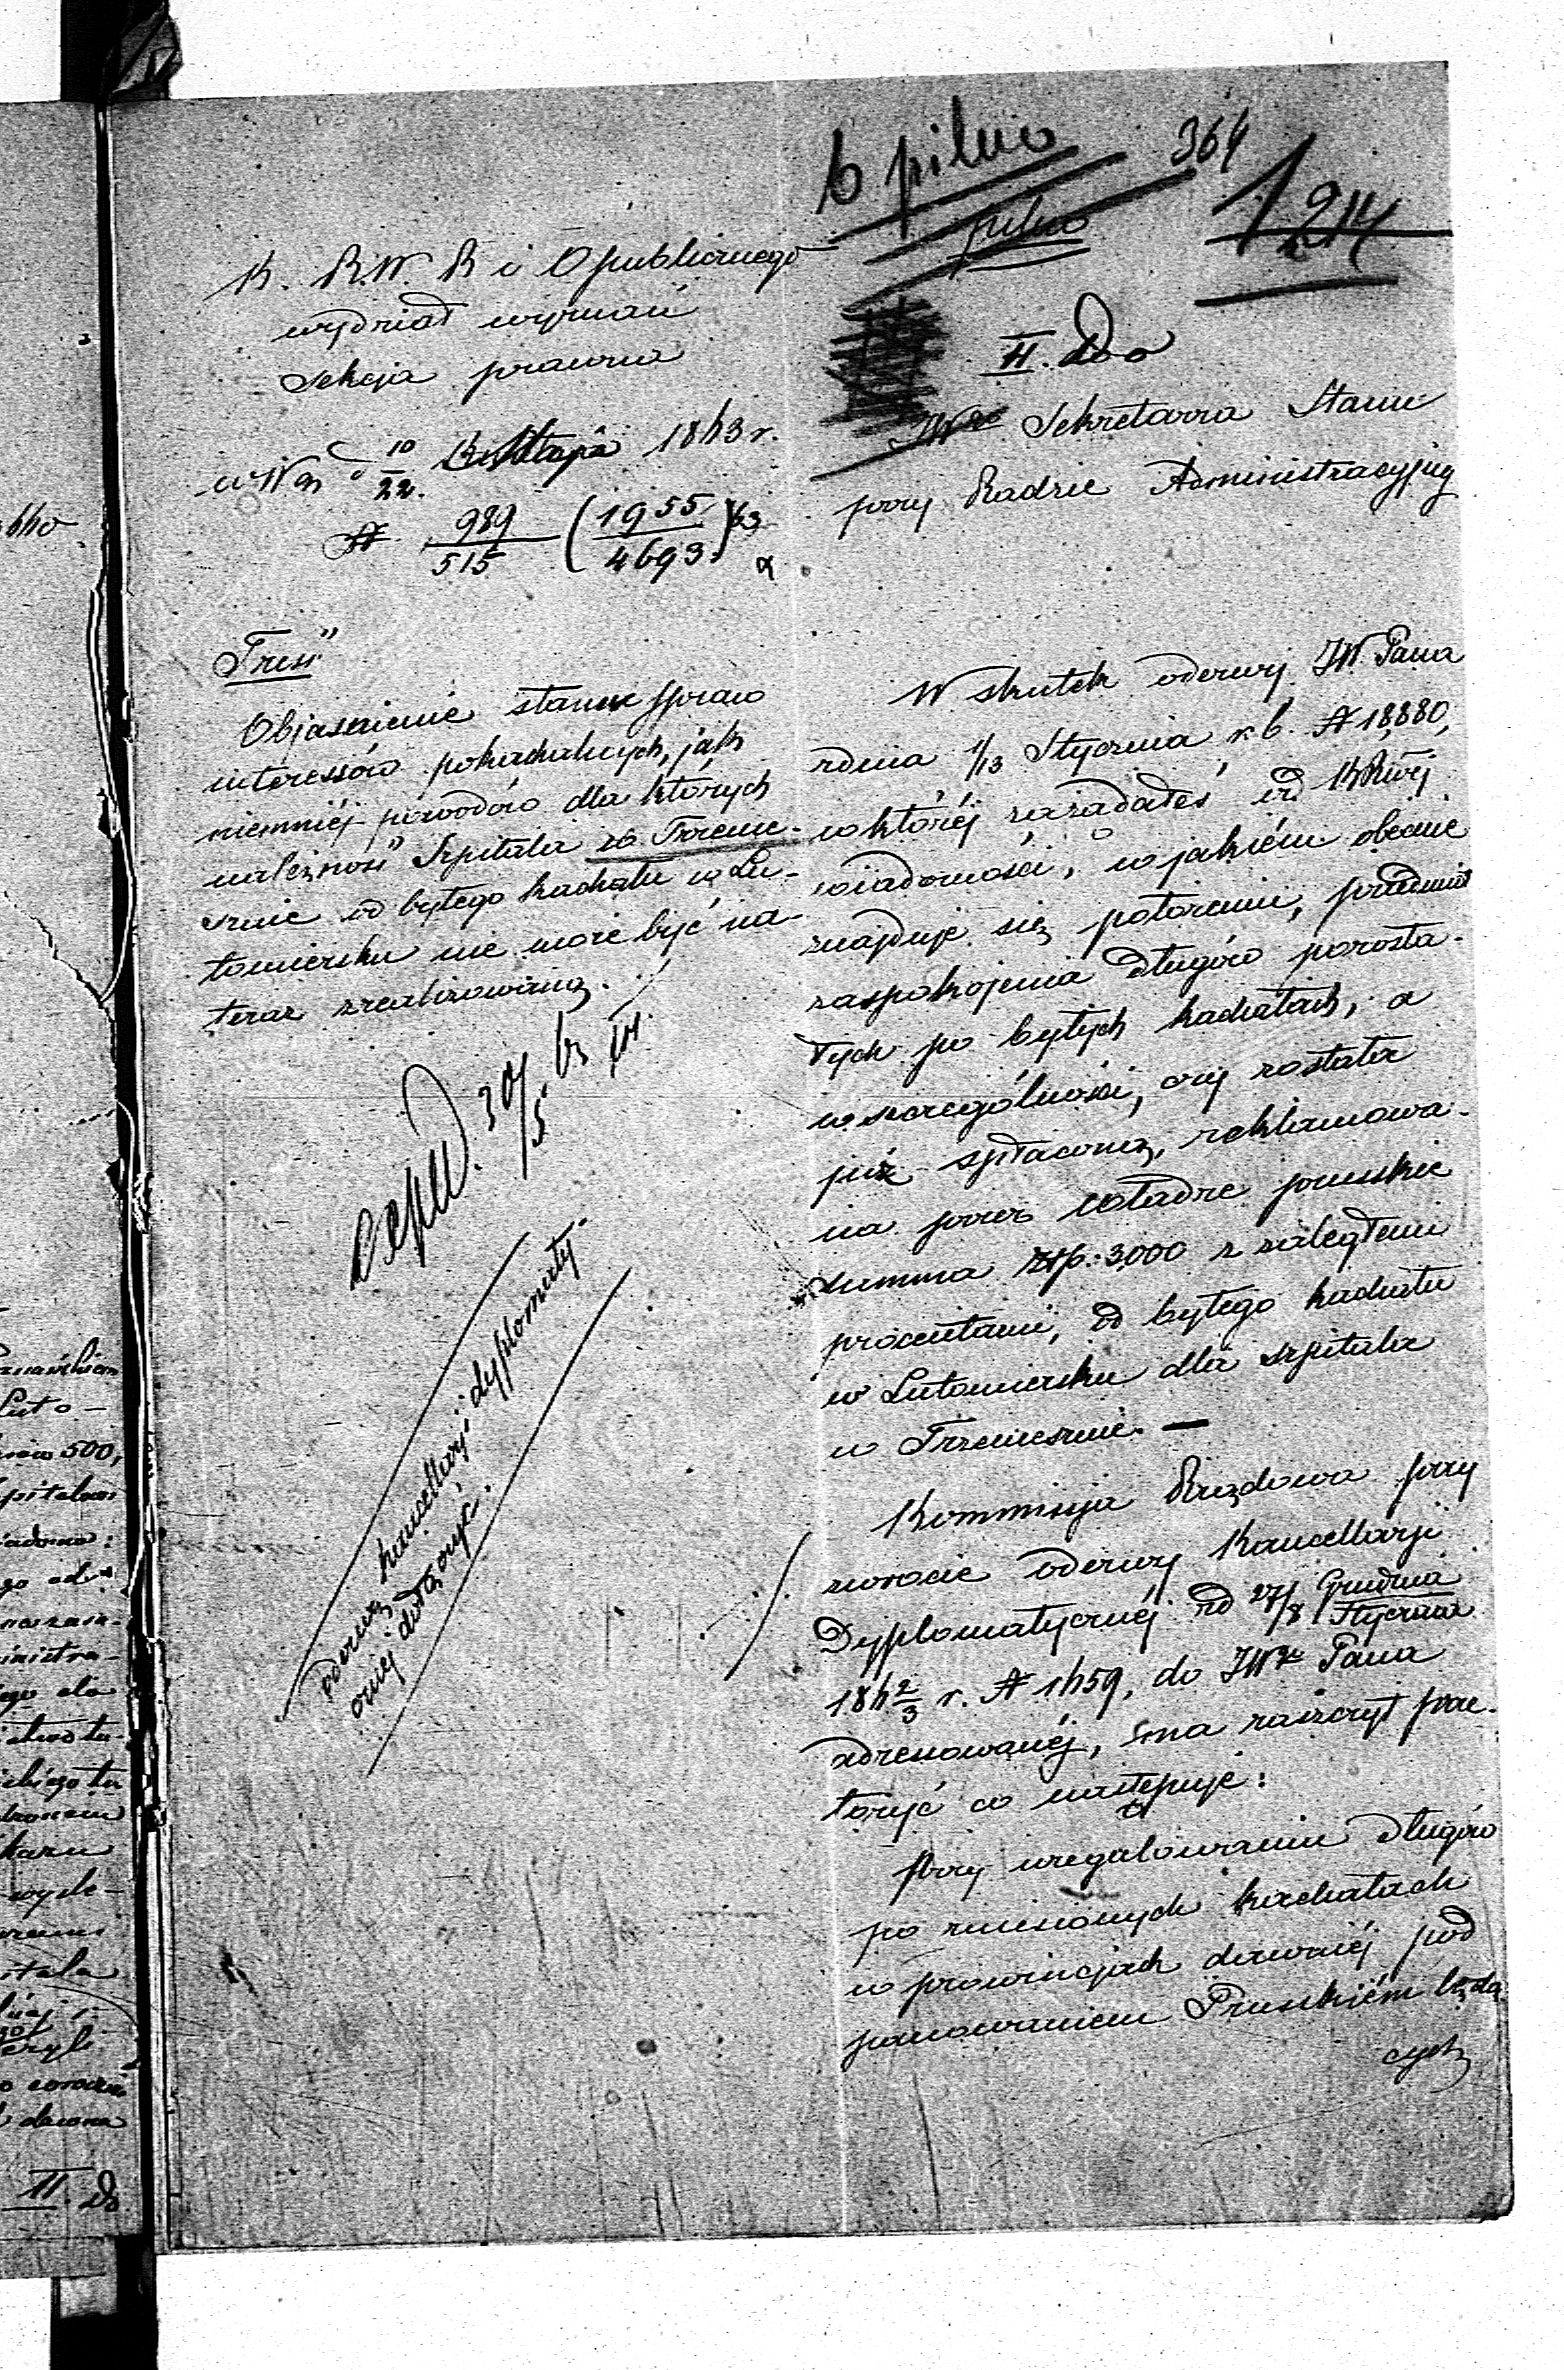 6 pilno
364
pilno
124
K. R. W. R i O publicznego
wydział wyznań
sekcja prawna
w W. d 10/22 Maja 1843 r.
N 989/515 (1955/4693) 43
II. Do
JWo Sekretarza Stanu
przy Radzie Administracyjnej
Treść
Objaśnienie stanu spraw
interessów pokachalnych, jak
niemniéj powodów dla których
należność Szpitala w Trzeme-
sznie od byłego kachału w Lu-
tomiersku nie może być na-
teraz zrealizowaną.
Exped. 30/5 43
odezwę kancellaryi dyplomaty-
cznéj dołączyć.
W skutek odezwy JW. Pana
z dnia 1/13 Stycznia r. b. N 18,880,
w któréj zażądałeś od KRwéj
wiadomości, w jakiém obecnie
znajduje się położeniu, przedmiot
zaspokojenia długów pozosta-
łych po byłych kachałach, a
w szczególności, czy została
już spłaconą, reklamowa-
na przez władze pruskie
summa Złp. 3000 z zaległemi
procentami, od byłego kachału
w Lutomiersku dla szpitala
w Trzemesznie. —
Kommissja Rządowa przy
zwrocie odezwy Kancellaryi
Dyplomatycznéj z d 27/8 Grudnia/Stycznia
184 2/3 r. N 1459, do JWgo Pana
adressowanéj, ma zaszczyt przy-
toczyć co następuje:
Przy uregulowaniu długów
po zniesionych kachałach
w prowincjach dawniéj pod
panowaniem Pruskiém będą-
cych
Luto-
500,
II. Do